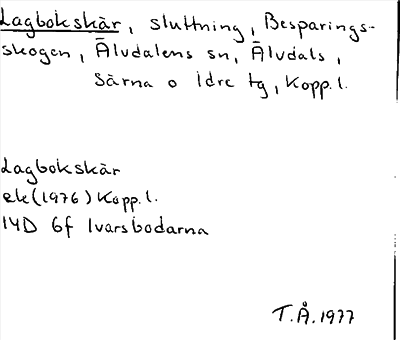 Lagbokskär, sluttning, Besparings-
skogen, Älvdalens sn, Älvdals,
Särna o Idre tg, Kopp.l.
Lagbokskär
ek(1976) Kopp.l.
14D 6f Ivarsbodarna
T.Å.1977